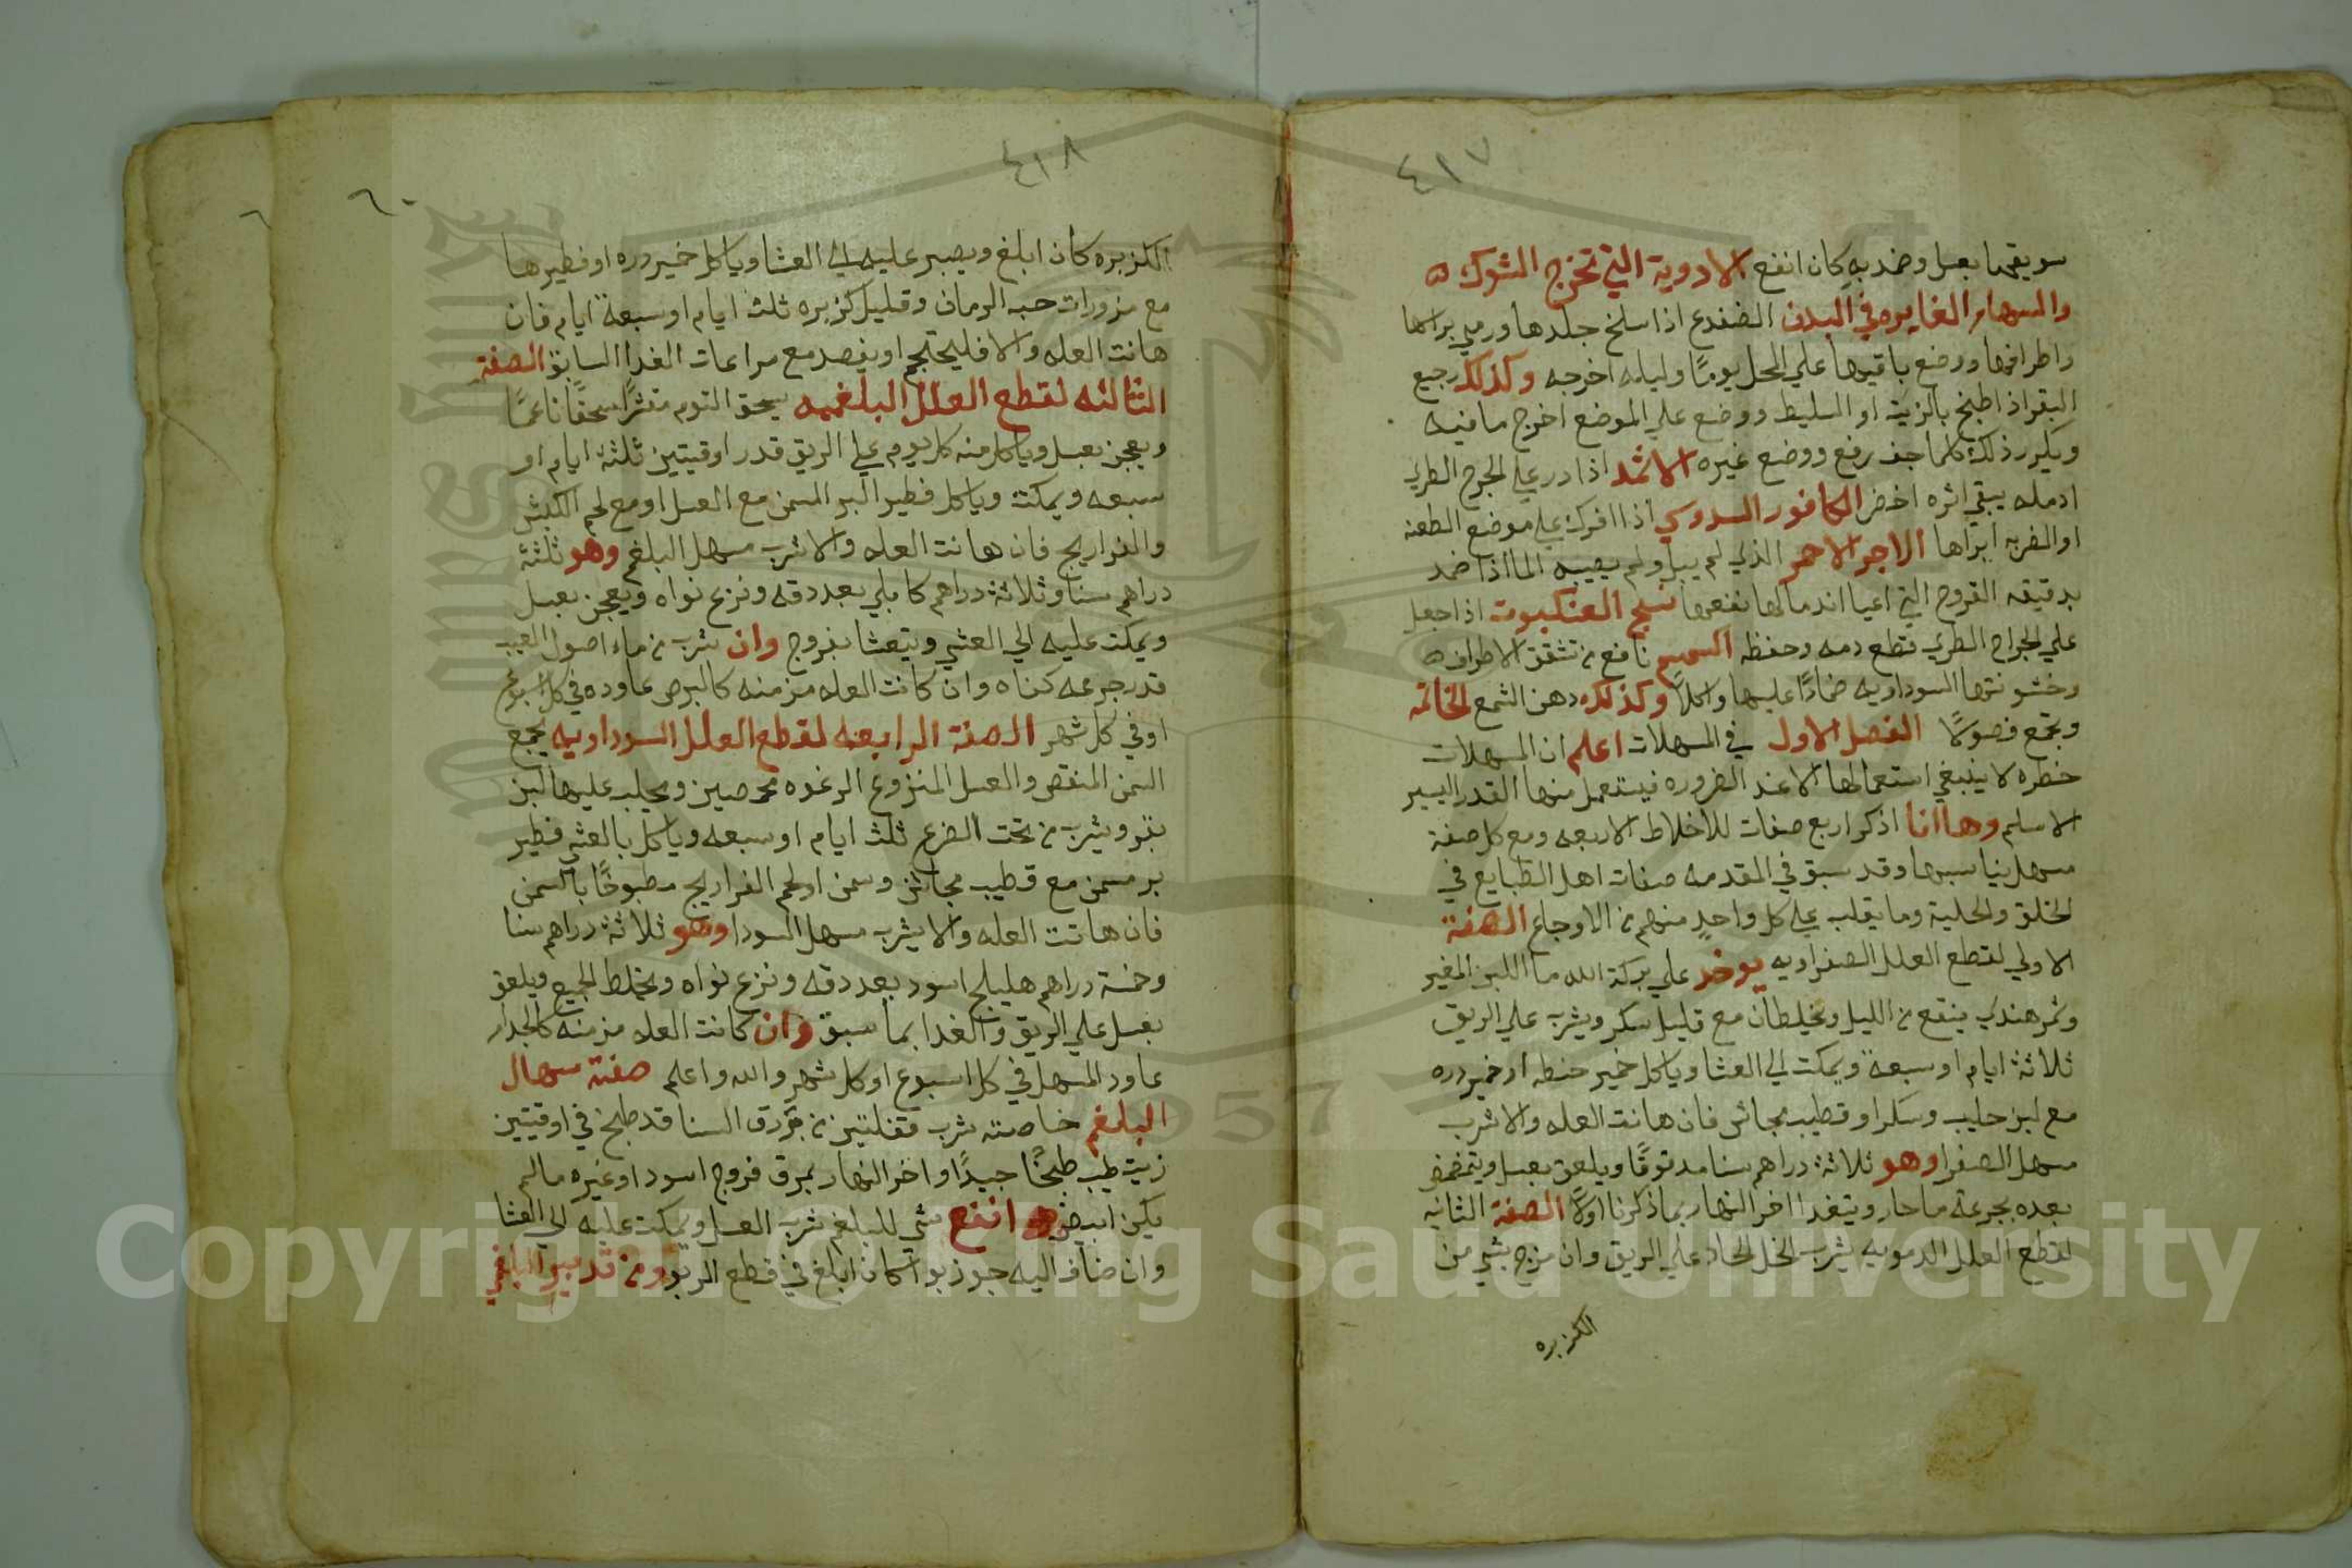 ٤١٧
سويقها بعسل وضمد به كان انفع الادوية التي تخرج الشوك
والسهام الغايره في البدن الضفدع اذا سلخ جلدها ورمي براسها
واطرافها ووضع باقيها علي المحل يومًا وليله اخرجه وكذلك رجيع
البقر اذا طبخ بالزيت او السليط ووضع علي الموضع اخرج ما فيه
ويكرر ذلك كلما جف رفع ووضع غيره الاثمد اذا در علي الجرح الطري
ادمله يبقي اثره اخضر الكافور السدوسي اذا افرك علي موضع الطعنه
او الضربه ابراها الاجر الاحمر الذي لم يبل ولم يصيبه الما اذا ضمد
بدقيقه القروح التي اعيا اندمالها نفعها نسج العنكبوت اذا جعل
علي الجراح الطري قطع دمه وحفظه السمسم نافع من تشقق الاطراف
وخشونتها السوداويه ضمادًا عليها واكلاً وكذلك دهن الشمع الخاتمه
وتجمع فصولاً الفصل الاول في المسهلات اعلم ان المسهلات
خطره لا ينبغي استعمالها الا عند الضروره فيستعمل منها القدر اليسير
الاسلم وها انا اذكر اربع صفات للاخلاط الاربعه ومع كل صفة
مسهل يناسبها وقد سبق في المقدمه صفات اهل الطبايع في
الخلق والحلية وما يغلب علي كل واحدٍ منهم من الاوجاع الصفة
الاولي لقطع العلل الصفراويه يوخذ علي بركة الله ما اللبن المغير
وتمر هندي ينقع من الليل ويخلطان مع قليل سكر ويشرب علي الريق
ثلاثة ايام او سبعة ويمكث الي العشا وياكل خمير حنطه او خمير دره
مع لبن حليب وسكر او قطيب مجاش فان هانت العله والا شرب
مسهل الصفرا وهو ثلاثة دراهم سنا مدقوقًا ويلعق بعسل ويتمضمض
بعده بجرعة ما حار ويتغدا اخر النهار بما ذكرنا اولاً الصفة الثانيه
لقطع العلل الدمويه يشرب الخل الحاد علي الريق وان مزج بشي من
الكزبره
٤١٨
٦٠
الكزبره كان ابلغ ويصبر عليه الي العشا وياكل خمير دره او فطيرها
مع مزورات حبه الرمان وقليل كزبره ثلث ايام او سبعة ايام فان
هانت العله والا فليحتجم او يفصد مع مراعات الغدا السابق الصفة
الثالثه لقطع العلل البلغميه يسحق الثوم مقشرًا سحقًا ناعمًا
ويعجن بعسل وياكل منه كل يوم علي الريق قدر اوقيتين ثلثة ايام او
سبعه ويمكث وياكل فطير البر المسمن مع العسل او مع لحم الكبش
والفراريج فان هانت العله والا شرب مسهل البلغم وهو ثلثة
دراهم سنا وثلاثة دراهم كابلي بعد دقه ونزع نواه ويعجن بعسل
ويمكث عليه الي العشي ويتعشا بفروج وان شرب من ماء اصول العبب
قدر جرعه كفاه وان كانت العله مزمنه كالبرص عاوده في كل اسبوع
او في كل شهر الصفة الرابعه لقطع العلل السوداويه يجمع
السمن المنقص والعسل المنزوع الرغوه محرصين ويحلب عليها لبن
بقر ويشرب من تحت الضرع ثلث ايام او سبعه وياكل بالعشي فطير
بر مسمن مع قطيب مجاش وسمن او لحم الفراريج مطبوخًا بالسمن
فان هانت العله والا يشرب مسهل السودا وهو ثلاثة دراهم سنا
وخمسة دراهم هليلج اسود بعد دقه ونزع نواه ويخلط الجميع ويلعق
بعسل علي الريق والغدا بما سبق وان كانت العله مزمنه كالجدام
عاود المسهل في كل اسبوع او كل شهر والله واعلم صفة سهال
البلغم خاصته شرب قفلتين من ورق السنا قد طبخ في اوقيتين
زيت طيب طبخًا جيدًا واخر النهار بمرق فروج اسود او غيره ما لم
يكن ابيض انفع شي للبلغم شرب العسل ويمكث عليه الي العشا
وان ضاف اليه جوز بوا كان ابلغ في قطع الربو ومن تدبير البلغم
Copyright © King Saud University
1957